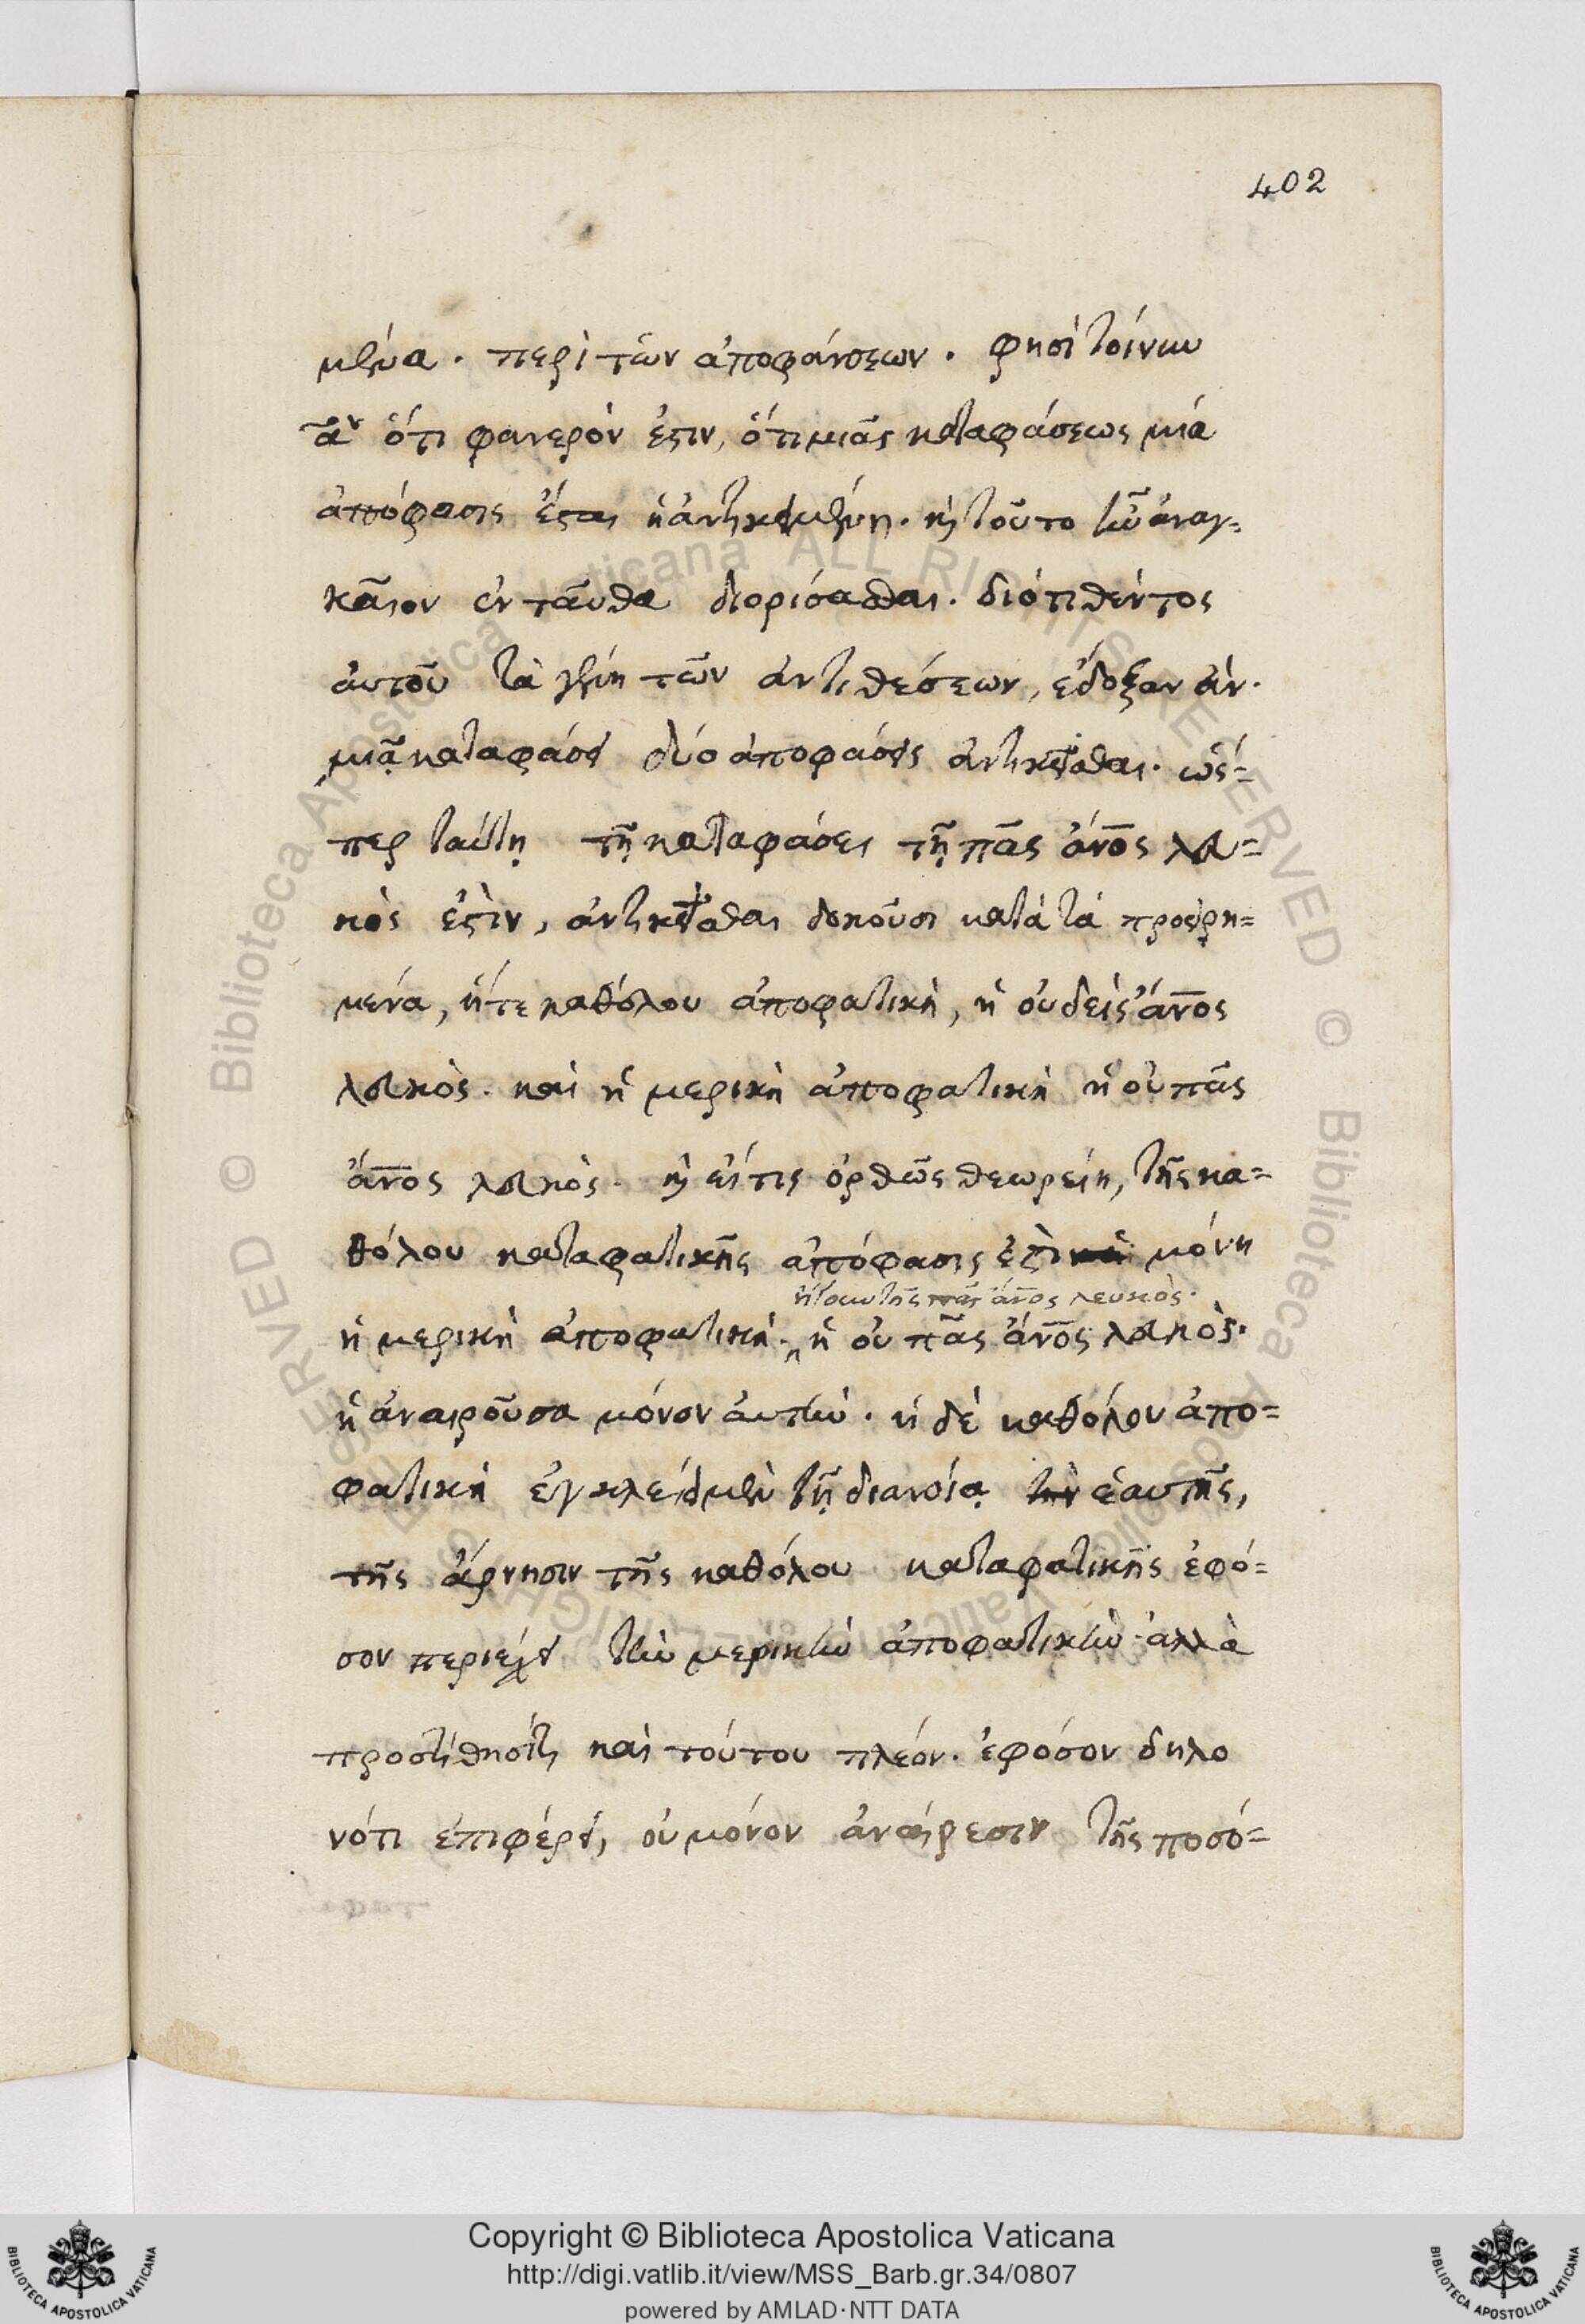 402
μένα. περὶ τῶν ἀποφάνσεων. φησὶ τοίνυν
ὅτι φανερόν ἐστιν, ὅτι μιᾶς καταφάσεως μία
ἀπόφασις ἔσται ἡ ἀντικειμένη. καὶ τοῦτο ἦν ἀναγ=
καῖον ἐνταῦθα διορίσασθαι. διότι θέντος
αὐτοῦ τὰ γένη τῶν ἀντιθέσεων, ἔδοξαν ἂν.
μιᾷ καταφάσει δύο ἀποφάσεις ἀντικεῖσθαι. ὥσ=
περ ταύτῃ τῇ καταφάσει τῇ πᾶς ἄνος λευ=
κός ἐστιν, ἀντικεῖσθαι δοκοῦσι κατὰ τὰ προειρη=
μένα, ἥτε καθόλου ἀποφατικὴ, ἡ οὐδεὶς ἄνος
λευκὸς. καὶ ἡ μερικὴ ἀποφατικὴ ἡ οὐ πᾶς
ἄνος λευκὸς. καὶ εἴ τις ὀρθῶς θεωρείη, τῆς κα=
θόλου καταφατικῆς ἀπόφασις ἐστὶ μόνη
ἤγουν τῆς πᾶς ἄνος λευκὸς.
ἡ μερικὴ ἀποφατικὴ. ἡ οὐ πᾶς ἄνος λευκὸς.
ἡ ἀναιροῦσα μόνον αὐτὴν. ἡ δὲ καθόλου ἀπο=
φατικὴ ἐγκλείει μὲν τῇ διανοίᾳ τὴν ἑαυτῆς,
τῆς ἄρνησιν τῆς καθόλου καταφατικῆς ἐφό=
σον περιέχει τὴν μερικὴν ἀποφατικὴν. ἀλλὰ
προστίθησί τι καὶ τούτου πλέον. ἐφόσον δηλο
νότι ἐπιφέρει, οὐ μόνον ἀναίρεσιν τῆς ποσό=
Copyright © Biblioteca Apostolica Vaticana
http://digi.vatlib.it/view/MSS_Barb.gr.34/0807
powered by AMLAD·NTT DATA